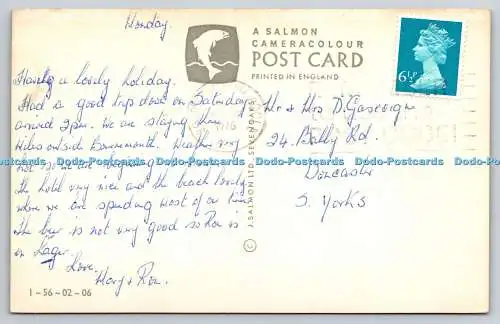 Monday.
Having a lovely holiday.
Had a good trip down on Saturday
arrived 2pm. We are staying three
miles outside Bournemouth. Weather very
hot so we are
the hotel very nice and the beach lovely
where we are spending most of our time
The beer is not very good so Ron is
on Lager.
Love
Mary + Ron
1-56-02-06
A SALMON
CAMERACOLOUR
POST CARD
PRINTED IN ENGLAND
© J. SALMON LTD., SEVENOAKS
6½P
Mr & Mrs D. Gascoign
24. Balby Rd.
Doncaster
S. Yorks
Dodo-Postcards Dodo-Postcards Dodo-Postcards Dodo-Postcards Dodo-Postcards Dodo-Postcards